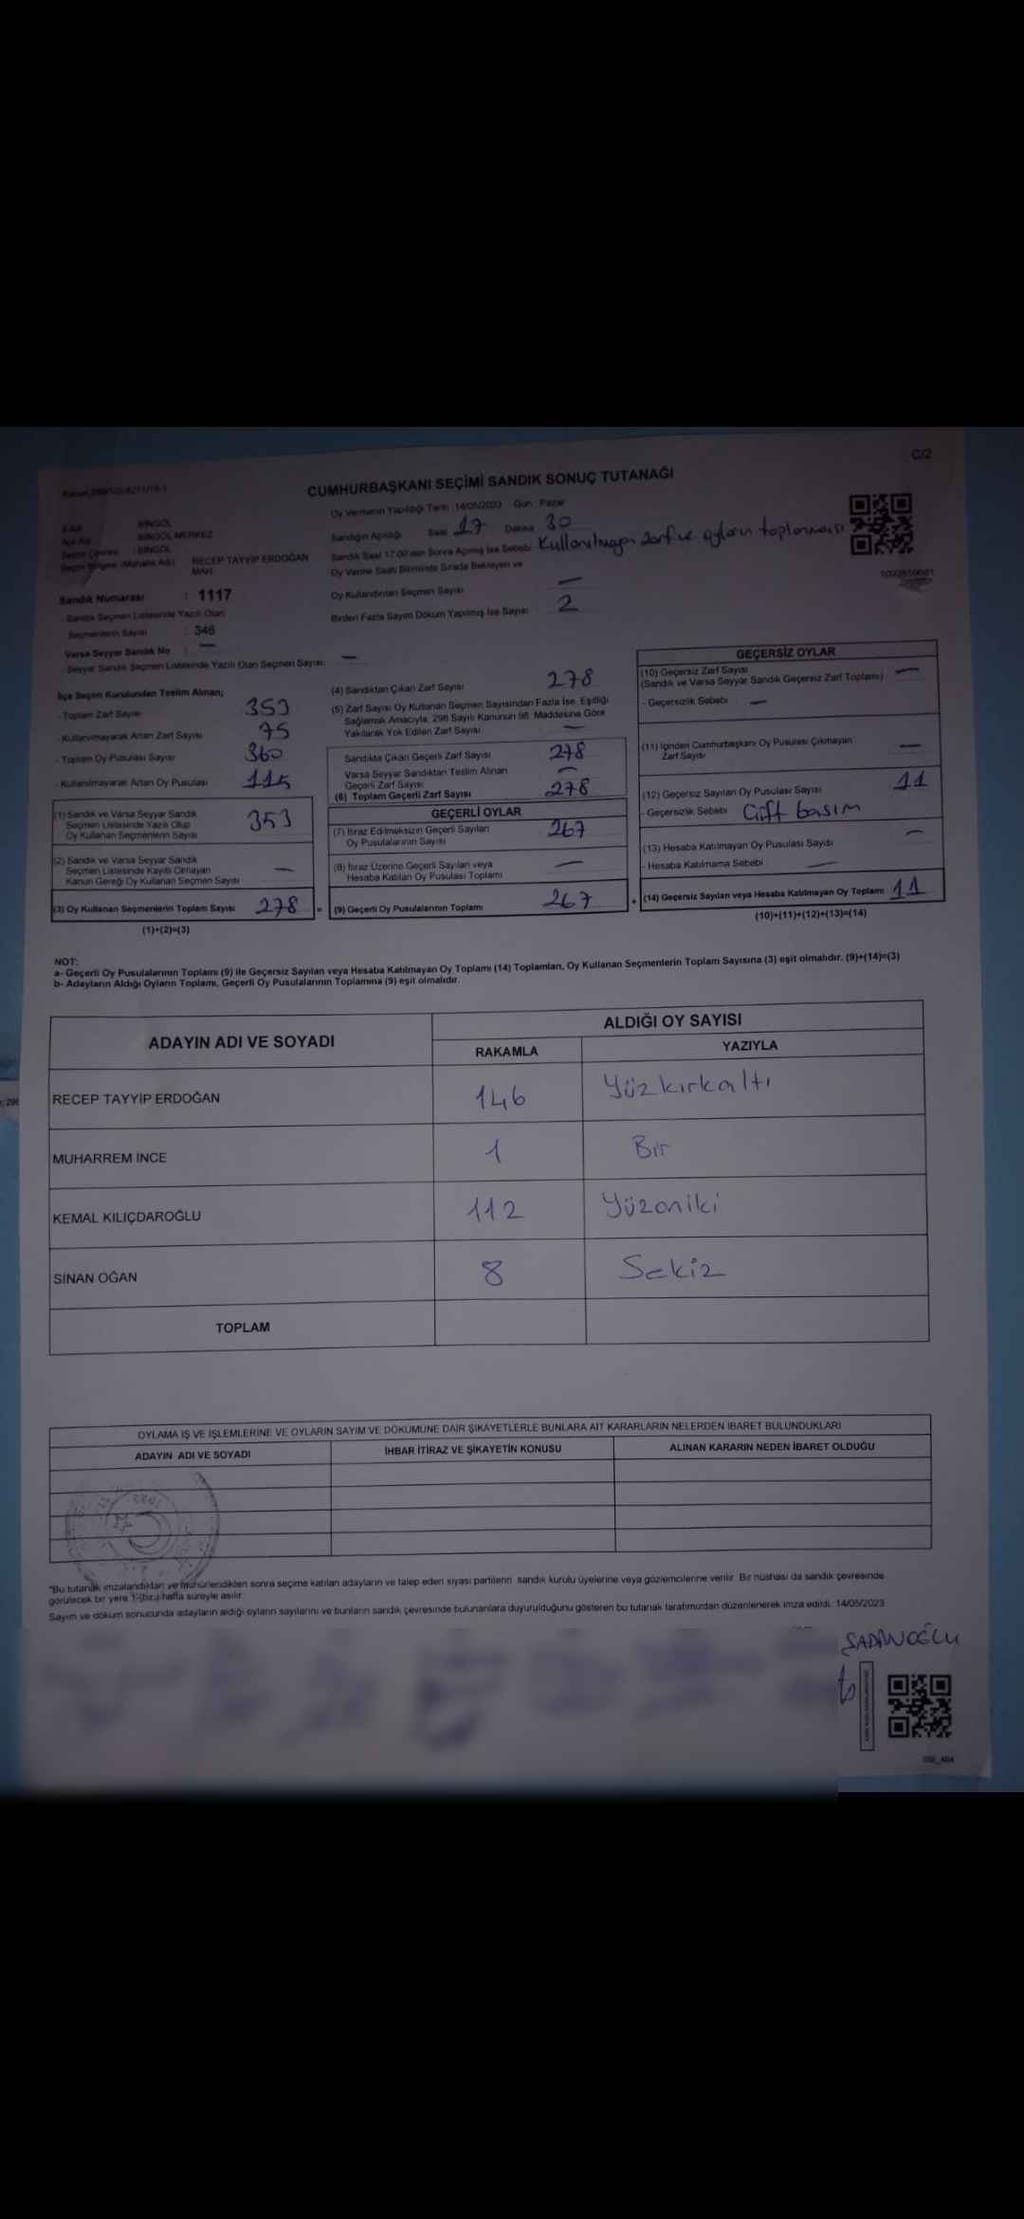 C/2
CUMHURBAŞKANI SEÇİMİ SANDIK SONUÇ TUTANAĞI
Oy Vermenin Yapıldığı Tarih: 14/05/2023 Gün: Pazar
BİNGÖL
BİNGÖL MERKEZ
BİNGÖL
RECEP TAYYİP ERDOĞAN
MAH.
Sandığın Açıldığı Saat 17 Dakika 30
Sandık Saat 17:00'den Sonra Açılmış İse Sebebi: Kullanılmayan zarf ve oyların toplanması
Oy Verme Saati Bitiminde Sırada Bekleyen ve
Oy Kullandırılan Seçmen Sayısı —
Birden Fazla Sayım Döküm Yapılmış İse Sayısı 2
Sandık Numarası : 1117
Sandık Seçmen Listesinde Yazılı Olan
Seçmenlerin Sayısı : 346
Varsa Seyyar Sandık No : —
Seyyar Sandık Seçmen Listesinde Yazılı Olan Seçmen Sayısı: —
İlçe Seçim Kurulundan Teslim Alınan;
- Toplam Zarf Sayısı 353
- Kullanılmayarak Artan Zarf Sayısı 75
- Toplam Oy Pusulası Sayısı 360
- Kullanılmayarak Artan Oy Pusulası 115
(1) Sandık ve Varsa Seyyar Sandık
Seçmen Listesinde Yazılı Olup
Oy Kullanan Seçmenlerin Sayısı 353
(2) Sandık ve Varsa Seyyar Sandık
Seçmen Listesinde Kayıtlı Olmayan
Kanun Gereği Oy Kullanan Seçmen Sayısı —
(3) Oy Kullanan Seçmenlerin Toplam Sayısı 278 =
(1)+(2)=(3)
(4) Sandıktan Çıkan Zarf Sayısı 278
(5) Zarf Sayısı Oy Kullanan Seçmen Sayısından Fazla İse, Eşitliği
Sağlamak Amacıyla, 298 Sayılı Kanunun 98. Maddesine Göre
Yakılarak Yok Edilen Zarf Sayısı —
Sandıkta Çıkan Geçerli Zarf Sayısı 278
Varsa Seyyar Sandıktan Teslim Alınan
Geçerli Zarf Sayısı —
(6) Toplam Geçerli Zarf Sayısı 278
GEÇERLİ OYLAR
(7) İtiraz Edilmeksizin Geçerli Sayılan
Oy Pusulalarının Sayısı 267
(8) İtiraz Üzerine Geçerli Sayılan veya
Hesaba Katılan Oy Pusulası Toplamı —
(9) Geçerli Oy Pusulalarının Toplamı 267 +
GEÇERSİZ OYLAR
(10) Geçersiz Zarf Sayısı
(Sandık ve Varsa Seyyar Sandık Geçersiz Zarf Toplamı) —
- Geçersizlik Sebebi —
(11) İçinden Cumhurbaşkanı Oy Pusulası Çıkmayan
Zarf Sayısı —
(12) Geçersiz Sayılan Oy Pusulası Sayısı 11
- Geçersizlik Sebebi Çift basım
(13) Hesaba Katılmayan Oy Pusulası Sayısı —
- Hesaba Katılmama Sebebi —
(14) Geçersiz Sayılan veya Hesaba Katılmayan Oy Toplamı 11
(10)+(11)+(12)+(13)=(14)
NOT:
a- Geçerli Oy Pusulalarının Toplamı (9) ile Geçersiz Sayılan veya Hesaba Katılmayan Oy Toplamı (14) Toplamları, Oy Kullanan Seçmenlerin Toplam Sayısına (3) eşit olmalıdır. (9)+(14)=(3)
b- Adayların Aldığı Oyların Toplamı, Geçerli Oy Pusulalarının Toplamına (9) eşit olmalıdır.
ADAYIN ADI VE SOYADI
ALDIĞI OY SAYISI
RAKAMLA YAZIYLA
RECEP TAYYİP ERDOĞAN 146 Yüzkırkaltı
MUHARREM İNCE 1 Bir
KEMAL KILIÇDAROĞLU 112 Yüzoniki
SİNAN OĞAN 8 Sekiz
TOPLAM
OYLAMA İŞ VE İŞLEMLERİNE VE OYLARIN SAYIM VE DÖKÜMÜNE DAİR ŞİKAYETLERLE BUNLARA AİT KARARLARIN NELERDEN İBARET BULUNDUKLARI
ADAYIN ADI VE SOYADI İHBAR İTİRAZ VE ŞİKAYETİN KONUSU ALINAN KARARIN NEDEN İBARET OLDUĞU
*Bu tutanak imzalandıktan ve mühürlendikten sonra seçime katılan adayların ve talep eden siyasi partilerin sandık kurulu üyelerine veya gözlemcilerine verilir. Bir nüshası da sandık çevresinde
görülecek bir yere 1 (bir) hafta süreyle asılır.
Sayım ve döküm sonucunda adayların aldığı oyların sayılarını ve bunların sandık çevresinde bulunanlara duyurulduğunu gösteren bu tutanak tarafımızdan düzenlenerek imza edildi. 14/05/2023